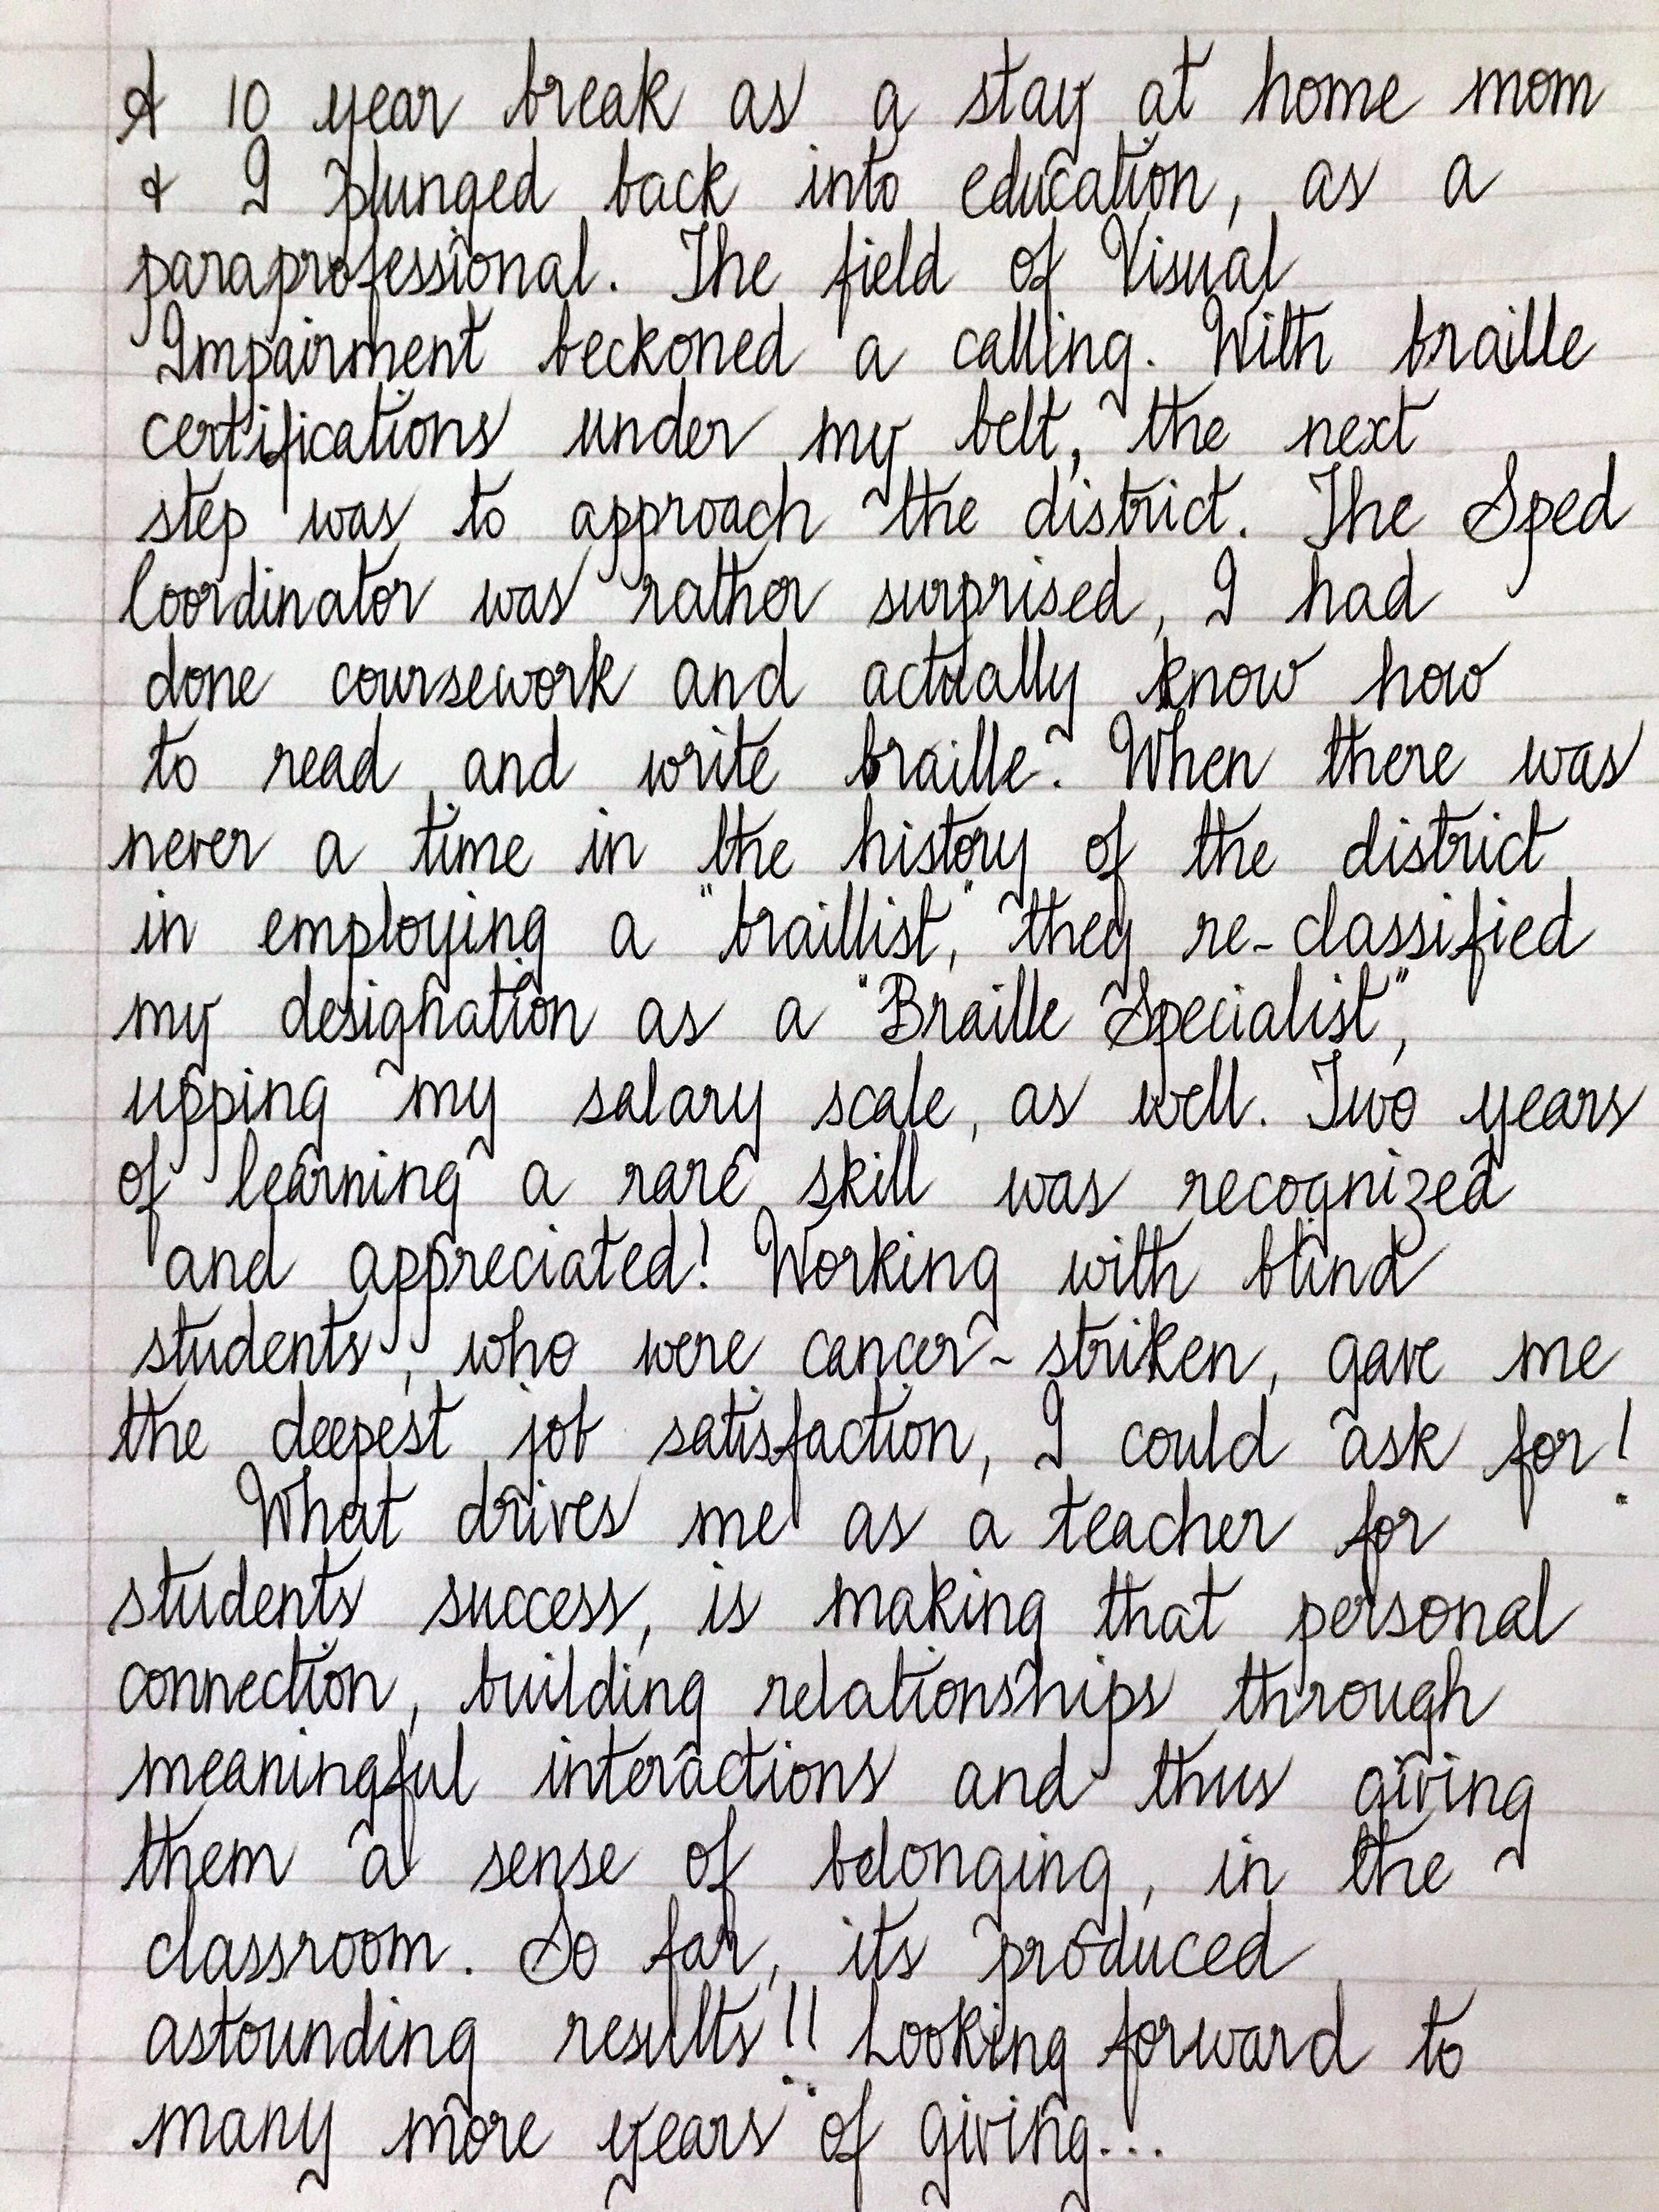 A 10 year break as a stay at home mom
& I plunged back into education, as a
paraprofessional. The field of Visual
Impairment beckoned a calling. With braille
certifications under my belt, the next
step was to approach the district. The Sped
Coordinator was rather surprised, I had
done coursework and actually know how
to read and write braille. When there was
never a time in the history of the district
in employing a "braillist," they re-classified
my designation as a "Braille Specialist",
upping my salary scale, as well. Two years
of learning a rare skill was recognized
and appreciated! Working with blind
students, who were cancer-striken, gave me
the deepest job satisfaction, I could ask for!
What drives me as a teacher for
students success, is making that personal
connection, building relationships through
meaningful interactions and thus giving
them a sense of belonging, in the
classroom. So far, its produced
astounding results!! Looking forward to
many more years of giving...